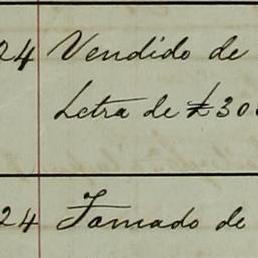 24 Vendido de
Letra de £300
24 Tomado de